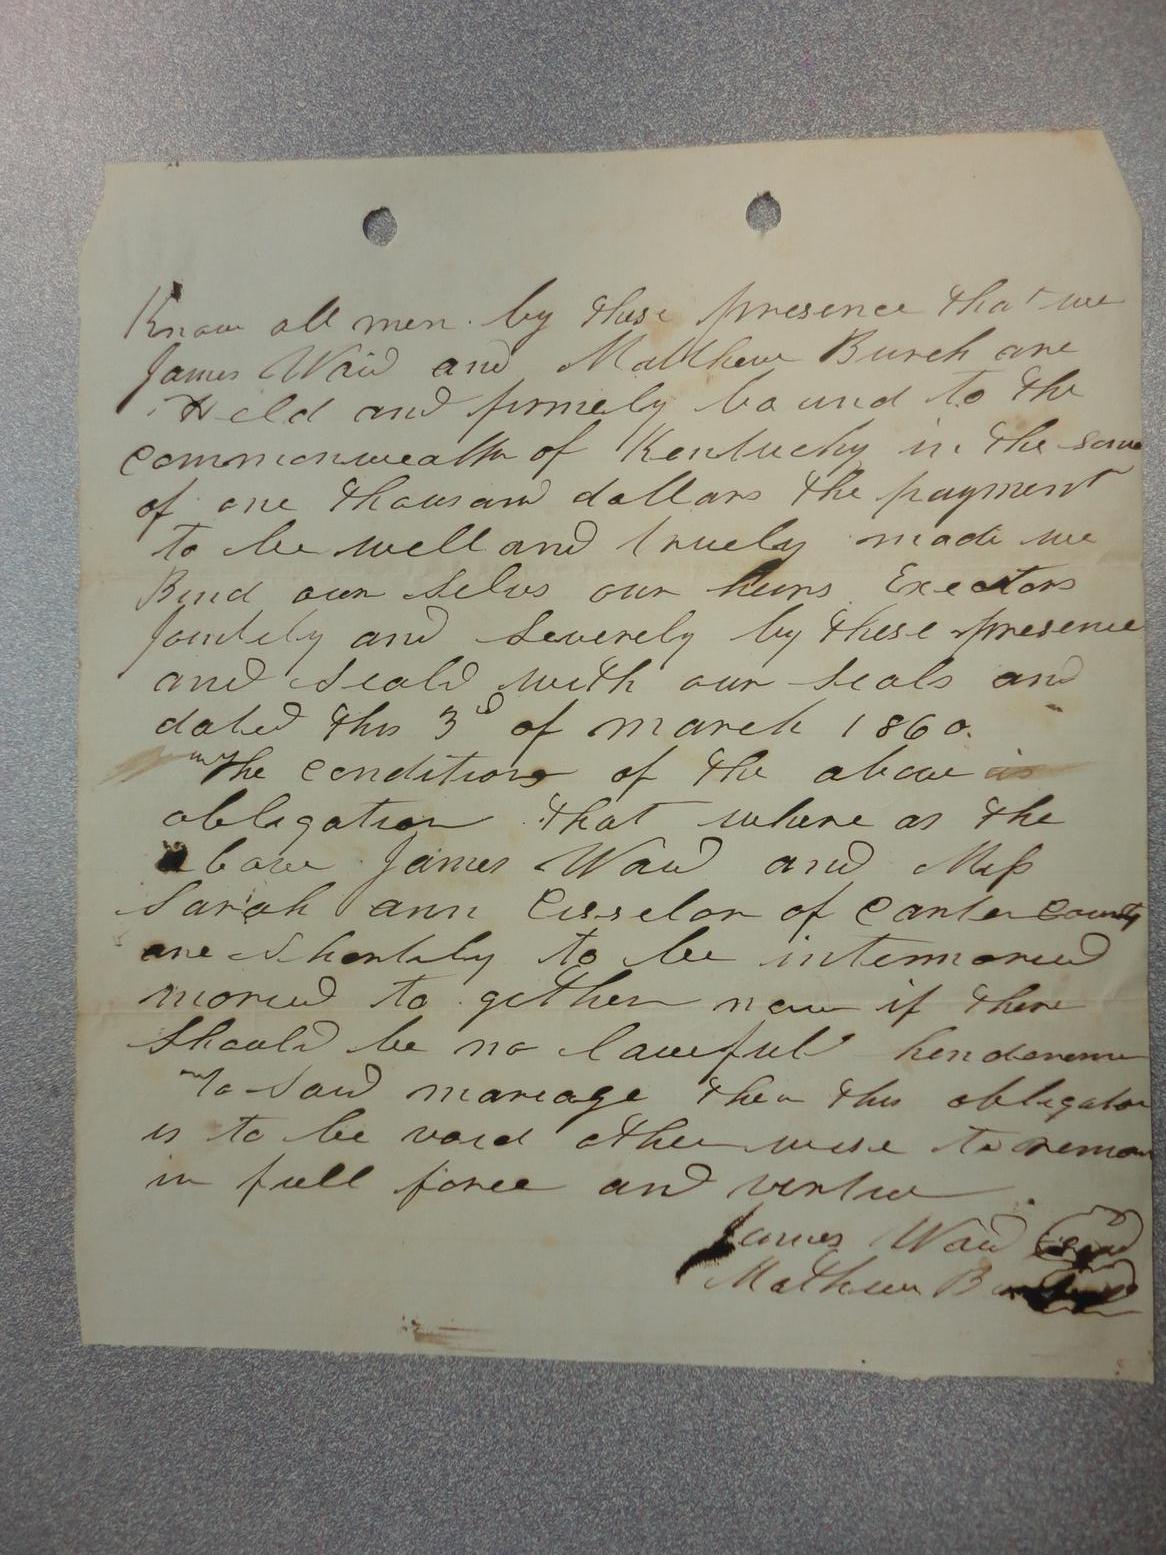 Know all men by these presence that we
James Waid and Matthew Burch are
Held and firmely bound to the
commonwealth of Kentucky in the some
of one thousand dollars the payment
to be well and truely made we
Bind our selvs our heirs Exectors
Jointely and Severely by these presence
and Seald with our seals and
dated this 3rd of march 1860.
The condition of the above is
obligation that where as the
above James Waid and Miss
Sarah ann of Carter County
are Shortely to be intermaried
maried to gether now if there
Should be no lawful hinderence
to Said mariage then this obligation
is to be void other wise to remain
in full force and virtue
James Waid Seal
Mathew